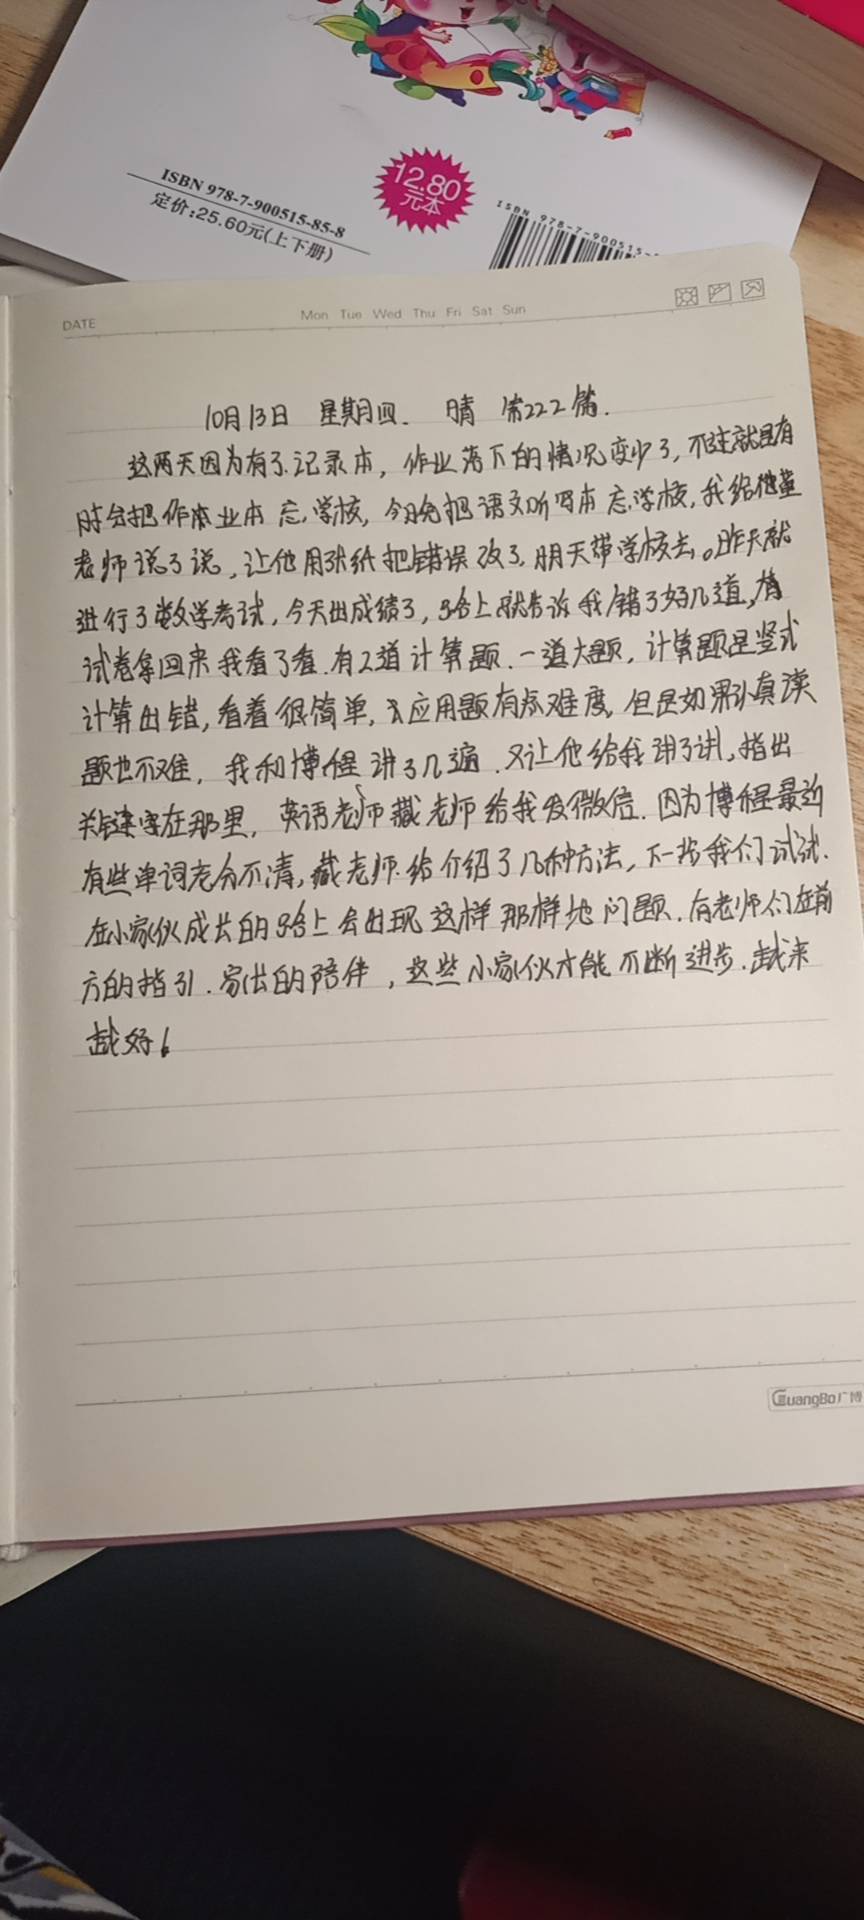 12.80
元/本
ISBN 978-7-900515-85-8
定价:25.60元(上下册)
ISBN 978-7-900515-
DATE
Mon Tue Wed Thu Fri Sat Sun
10月13日 星期四. 晴 第222篇.
这两天因为有了记录本，作业落下的情况变少了，不过就是有
时会把作业本忘学校，今晚把语文听写本忘学校，我给他董
老师说了说，让他用张纸把错误改了，明天带学校去。昨天就
进行了数学考试，今天出成绩了，路上就告诉我错了好几道，
试卷拿回来我看了看.有2道计算题.一道大题，计算题是竖式
计算出错，看着很简单，应用题有点难度，但是如果认真读
题也不难，我和博程讲了几遍.又让他给我讲了讲，指出
关键字在那里，英语老师臧老师给我发微信.因为博程最近
有些单词老分不清，臧老师.给介绍了几种方法，下一步我们试试.
在小家伙成长的路上会出现这样那样地问题.有老师们在前
方的指引.家长的陪伴，这些小家伙才能不断进步.越来
越好！
GuangBo广博